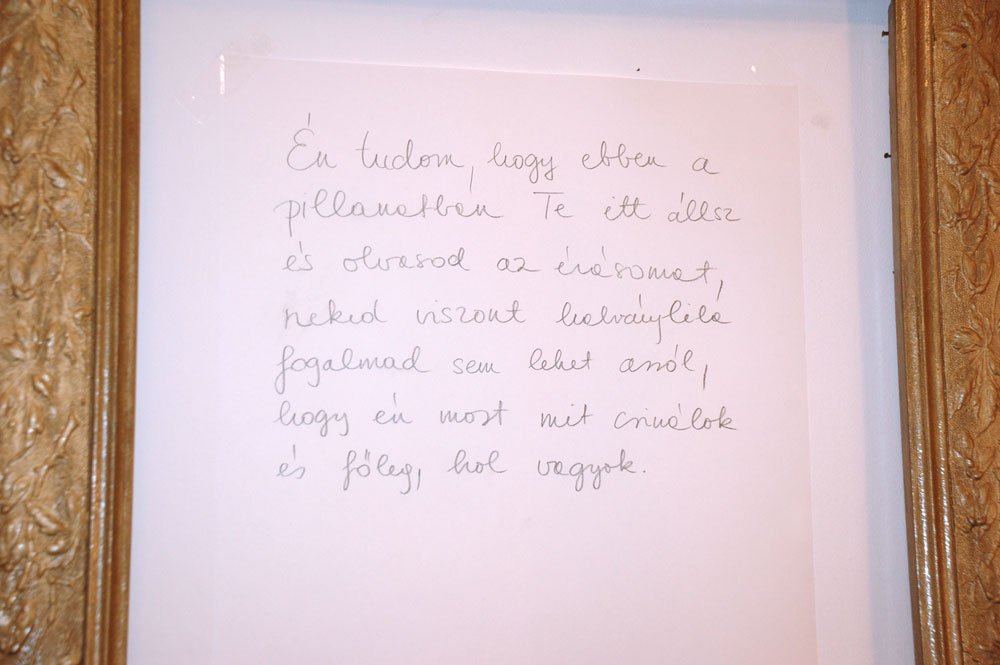 Én tudom, hogy ebben a
pillanatban Te itt állsz
és olvasod az írásomat,
neked viszont halványlila
fogalmad sem lehet arról,
hogy én most mit csinálok
és főleg, hol vagyok.